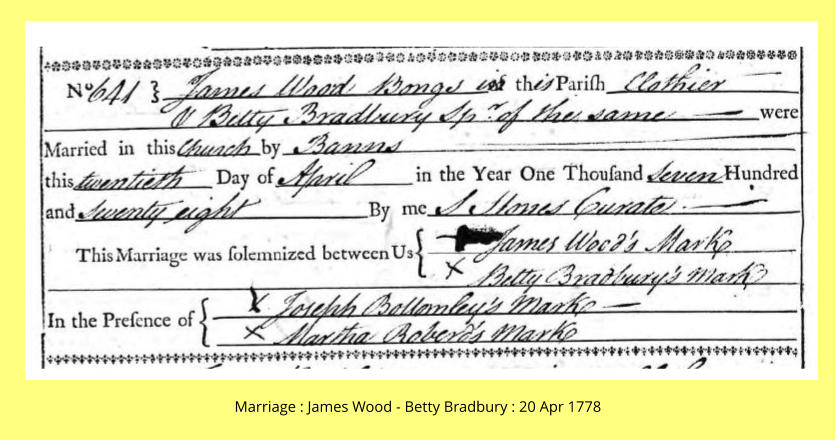 No 641 } James Wood Bongs in this Pariſh Clothier
& Betty Bradbury Spr. of the same were
Married in this Church by Banns
this twentieth Day of April in the Year One Thouſand Seven Hundred
and Seventy eight By me S Stones Curate
This Marriage was ſolemnized between Us { James Wood's Mark
X Betty Bradbury's Mark
In the Preſence of { X Joseph Bottomley's Mark
X Martha Roberd's Mark
Marriage : James Wood - Betty Bradbury : 20 Apr 1778